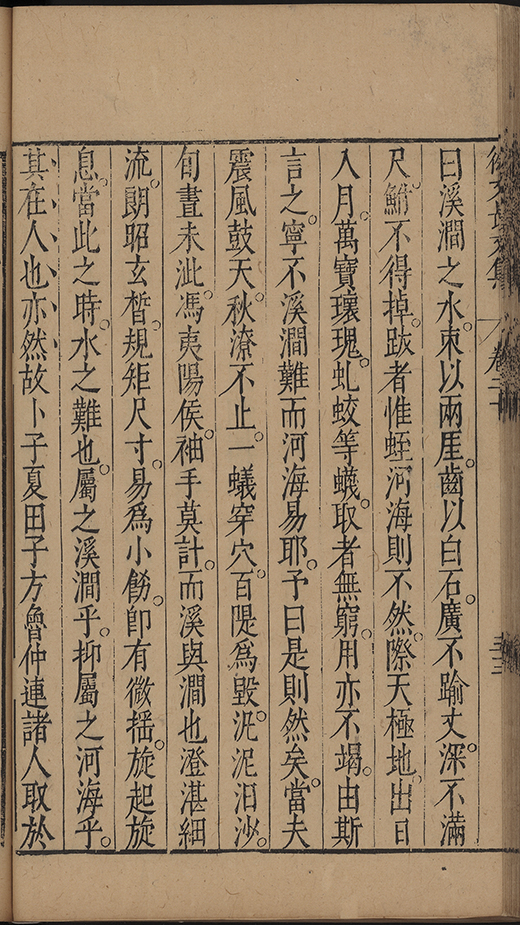 徐文長文集 卷二十 三三
曰溪澗之水束以兩厓齒以白石廣不踰丈深不滿
尺鰌不得掉跋者惟蛭河海則不然際天極地出日
入月萬寶瓌瑰虬蛟等蟻取者無窮用亦不竭由斯
言之寧不溪澗難而河海易耶予曰是則然矣當夫
震風鼓天秋潦不止一蟻穿穴百隄爲毀沉泥汨沙
旬晝未泚馮夷陽侯袖手莫計而溪與澗也澄湛細
流朗昭玄晳規矩尺寸易爲小飭卽有微揺旋起旋
息當此之時水之難也屬之溪澗乎抑屬之河海乎
其在人也亦然故卜子夏田子方魯仲連諸人取於